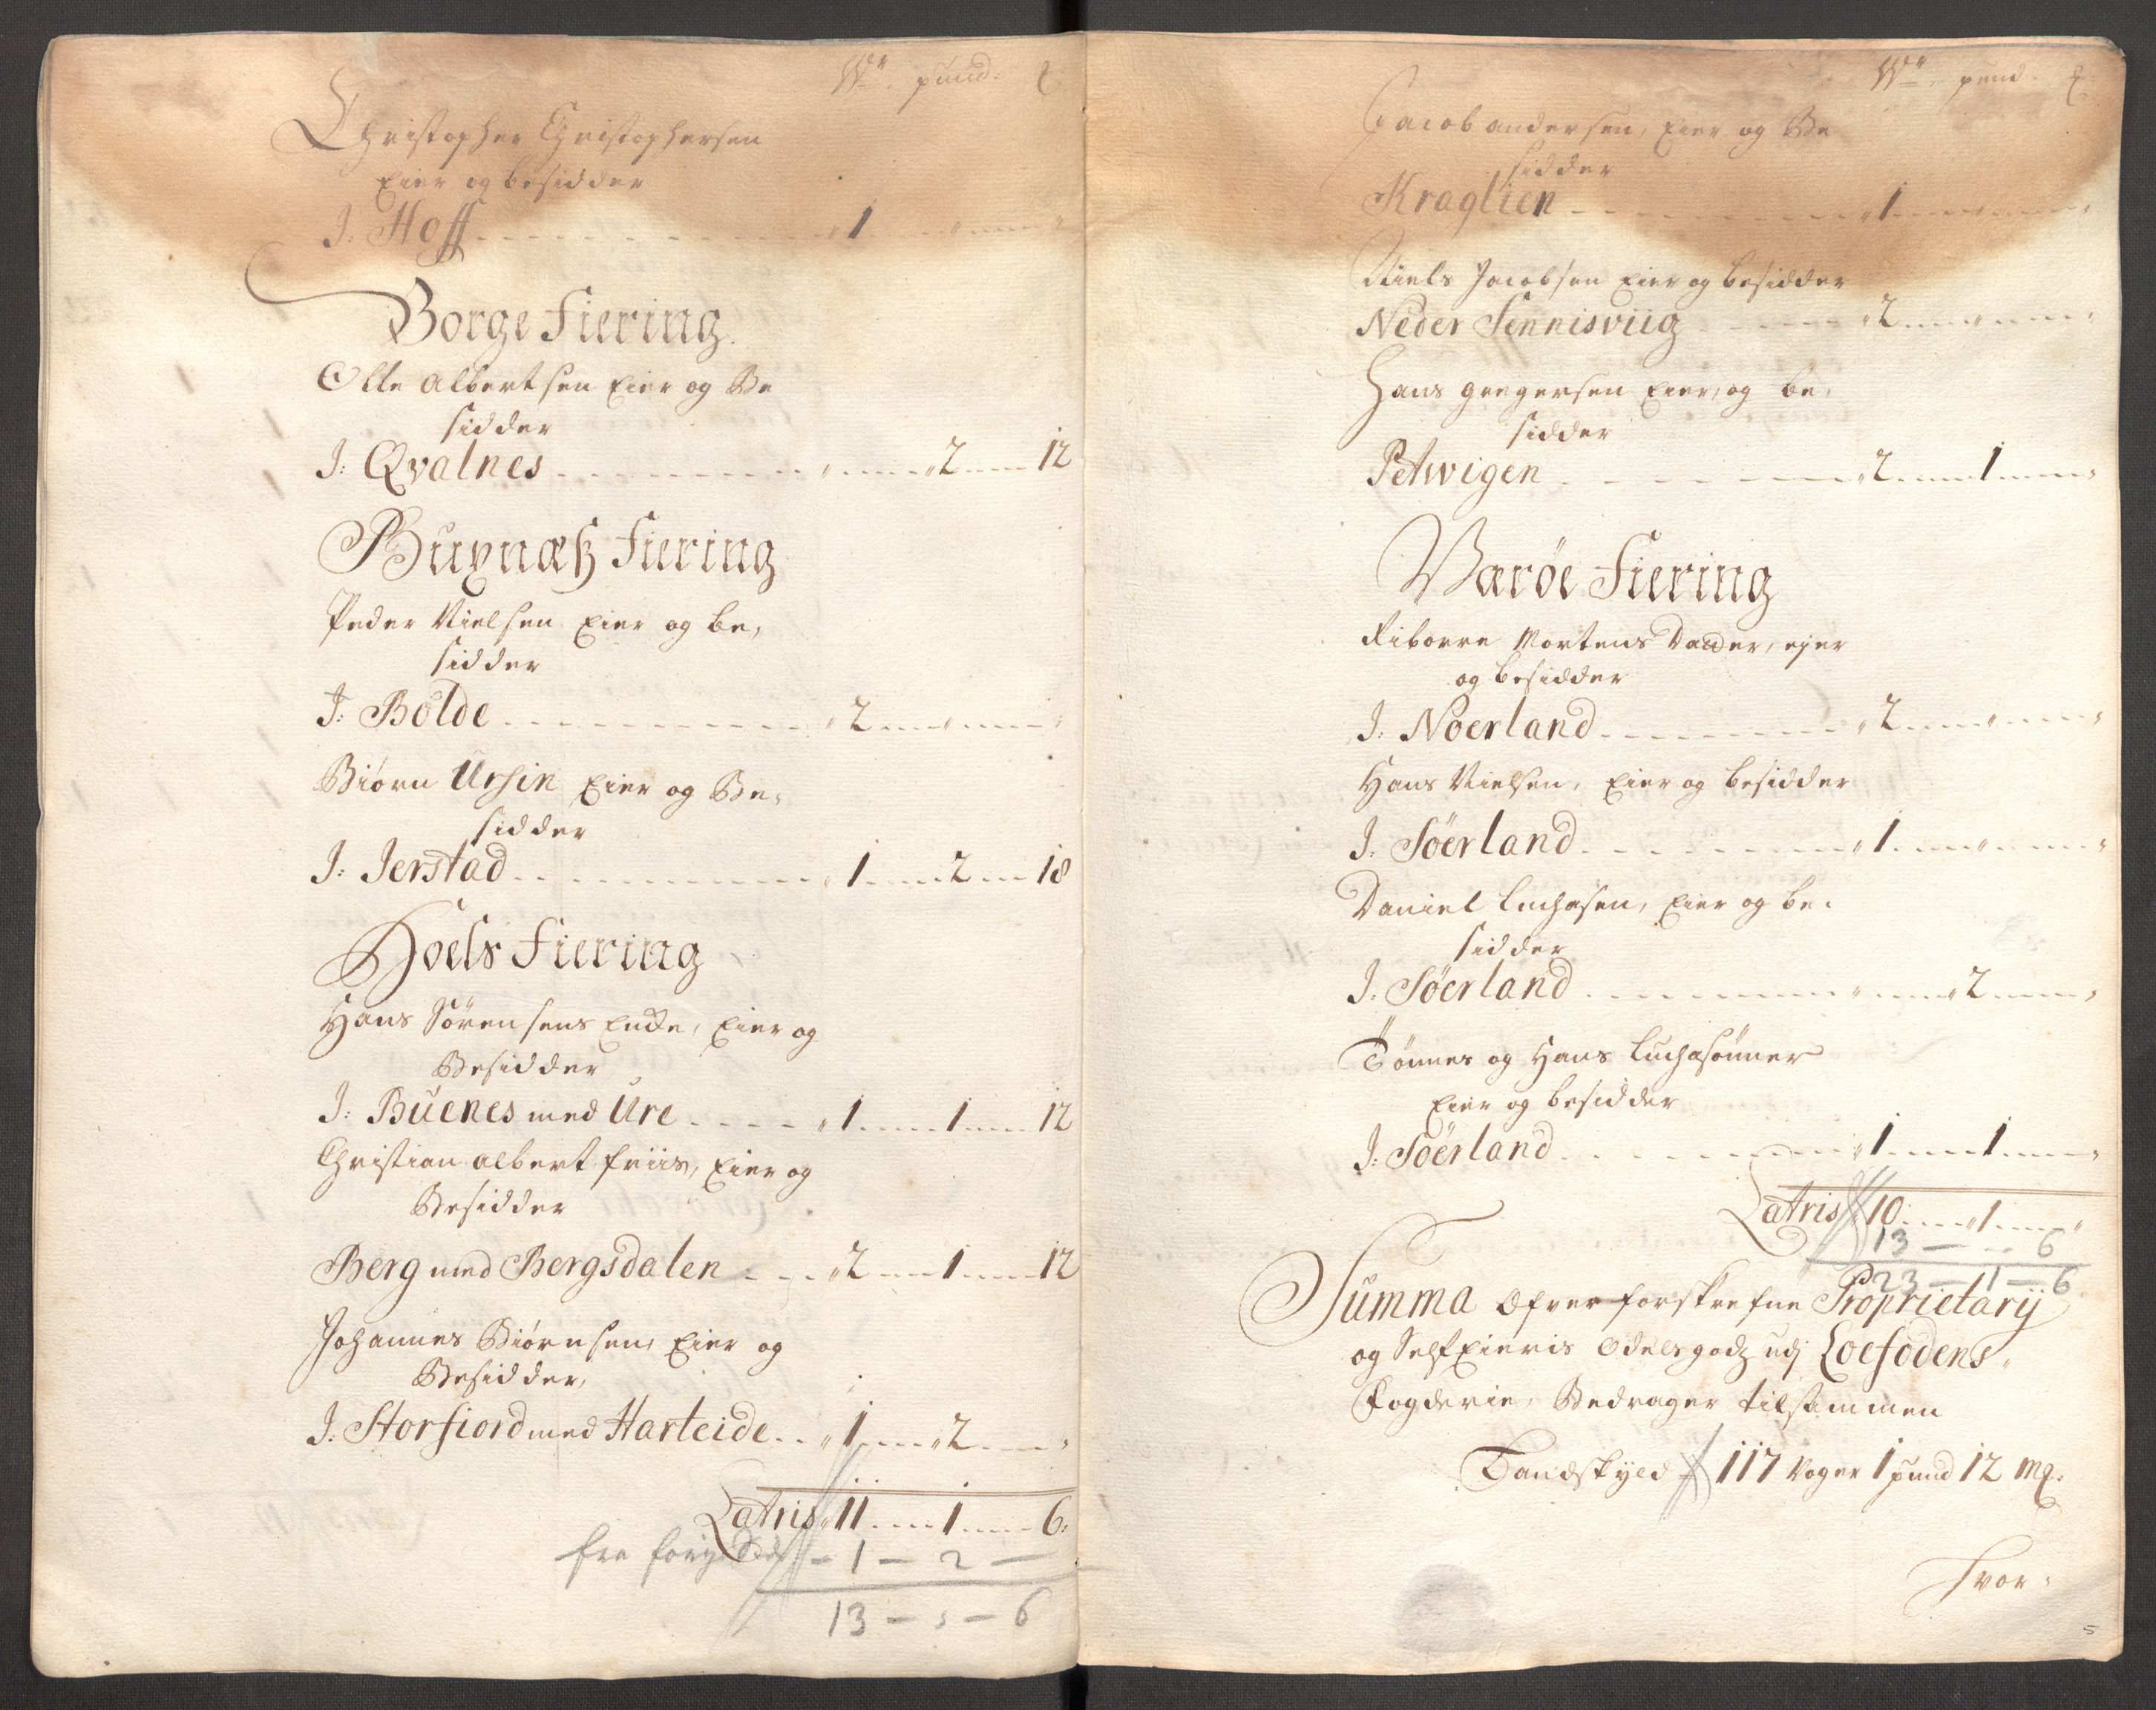 W. pund.
Christopher Christophersen
Eier og besidder
J. Hoff - - - 1 - - "
Borge Fiering.
Olle Albertsen Eier og Be
sidder
J: Qvalnes - - - " - - 2 - - 12
Buxnæß Fiering
Peder Nielsen Eier og be,
sidder
J: Bolde - - - 2 - - "
Biørn Ursin Eier og Be,
sidder
J: Jerstad - - - 1 - - 2 - - 18
Hoels Fiering
Hans Sörensens Encke, Eier og
Besidder
J: Buenes med Ure - - - 1 - - 1 - - 12
Christian Albert friis, Eier og
Besidder
Berg med Bergsdalen - - 2 - - 1 - - 12
Johannes Biörnsen, Eier og
Besidder,
J. Storfiord med Harteide - - 1 - - 2 - - "
Latris 11 - - 1 - - 6.
fra - 1 - 2 -
13 - " - 6
W. pund.
Jacob andersen, Eier og Be
sidder
Kraglien - - - 1 - - "
Niels Jacobsen Eier og besidder
Neder Sennisviig - - - 2 - - "
Hans gregersen Eier, og be,
sidder
Petwigen - - - 2 - - 1 - - "
Værøe Fiering
Mortens Datter, ejer
og besidder
J. Noerland - - - 2 - - "
Hans Nielsen, Eier og besidder
J. Söerland - - - 1 - - "
Daniel Luchasen, Eier og be,
sidder
J. Söerland - - - " - - 2 - - "
Tönnes og Hans Luchasönner
Eier og besidder
J: Söerland - - - 1 - - 1 - - "
Latris 10 - - 1 - - "
13 - - 6
23 - 1 - 6
Summa Ofver forskrefne Proprietarij
og SelfEieris Odelsgodz udj Loefodens
Fogderie, Bedrager tilsammen
Landskyld 117 Voger 1 pund 12 mg.
hvor-
5